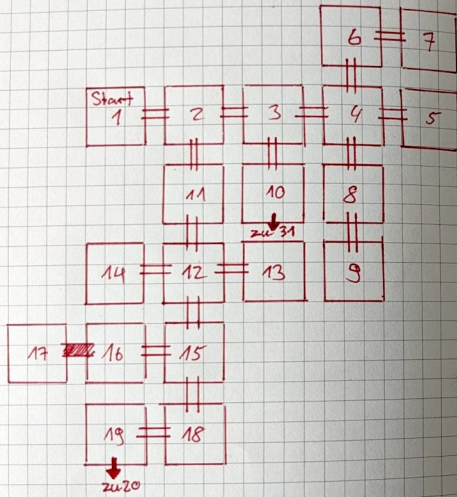 6 7
Start
1 2 3 4 5
11 10 8
zu 31
14 12 13 9
17 16 15
19 18
zu 20